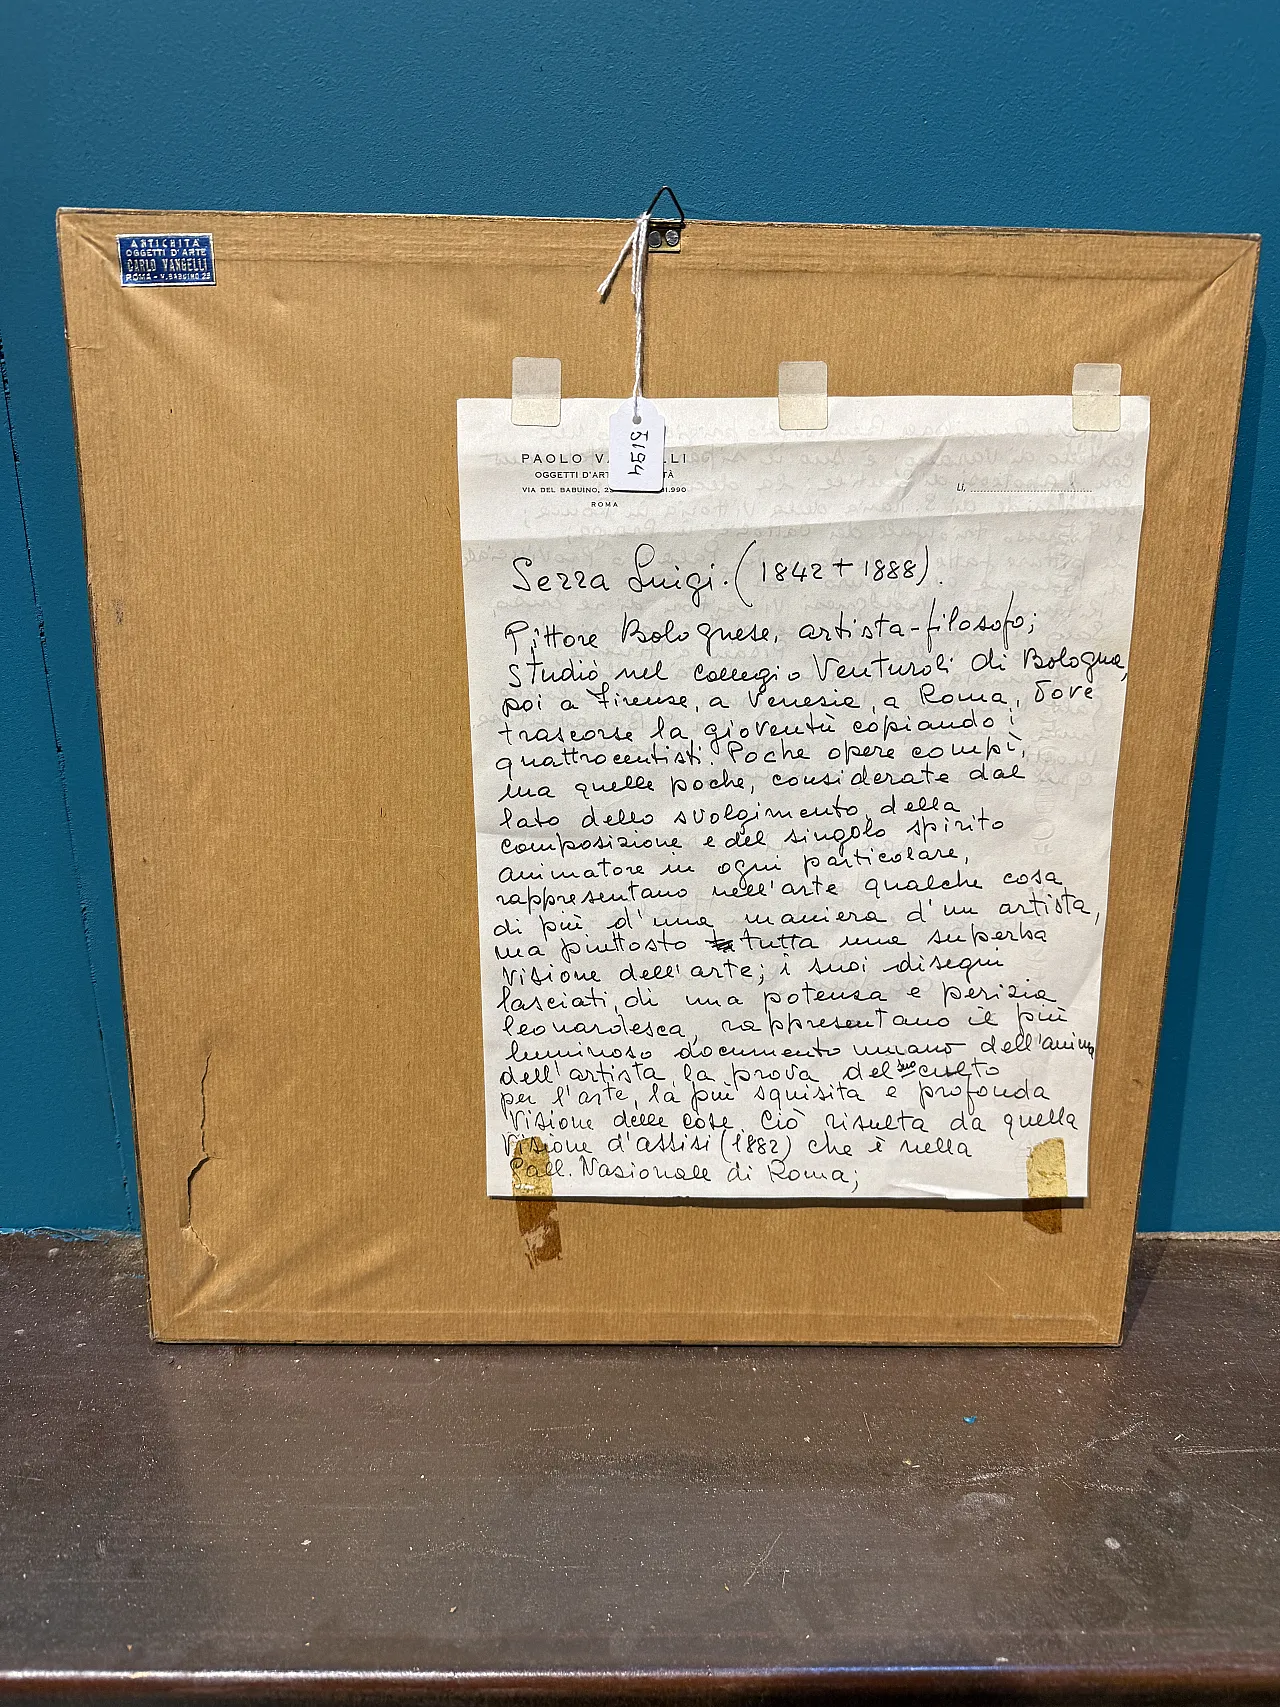 ANTICHITÀ
OGGETTI D'ARTE
CARLO VANGELLI
ROMA - V. BABUINO 29
5194
PAOLO
OGGETTI D'ART
VIA DEL BABUINO,
ROMA
Li,
Serra Luigi. (1842 + 1888).
Pittore Bolognese, artista-filosofo;
Studiò nel collegio Venturoli di Bologna,
poi a Firense, a Venesia, a Roma, dove
trascorse la gioventù copiando i
quattrocentisti. Poche opere compì,
ma quelle poche, considerate dal
lato dello svolgimento della
composizione e del singolo spirito
animatore in ogni particolare,
rappresentano nell'arte qualche cosa
di più d'una maniera d'un artista,
ma piuttosto tutta una superba
Visione dell'arte; i suoi disegni
lasciati, di una potensa e perizia
leonardesca, rappresentano il più
luminoso documento umano dell'anima
dell'artista, la prova del suo culto
per l'arte, la più squisita e profonda
Visione delle cose. Ciò risulta da quella
Visione d'assisi (1882) che è nella
Gall. Nasionale di Roma;